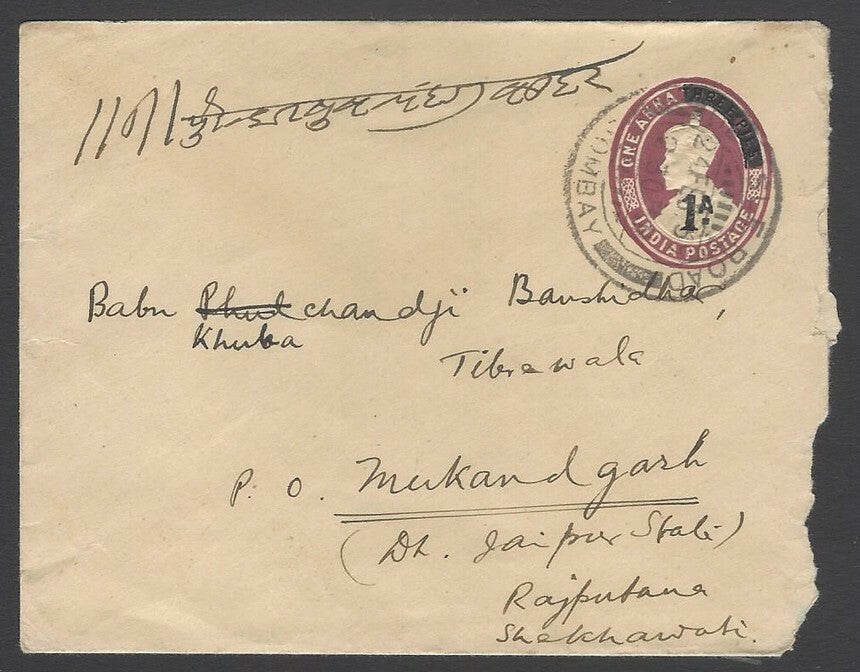 ONE ANNA THREE PIES
1A.
INDIA POSTAGE
BOMBAY
24 FEB
ROAD
Babu Phul chandji Banshidhar,
Khuba
Tibrewala
P. O. Mukandgarh
(Dt. Jaipur State)
Rajputana
Shekhawati.